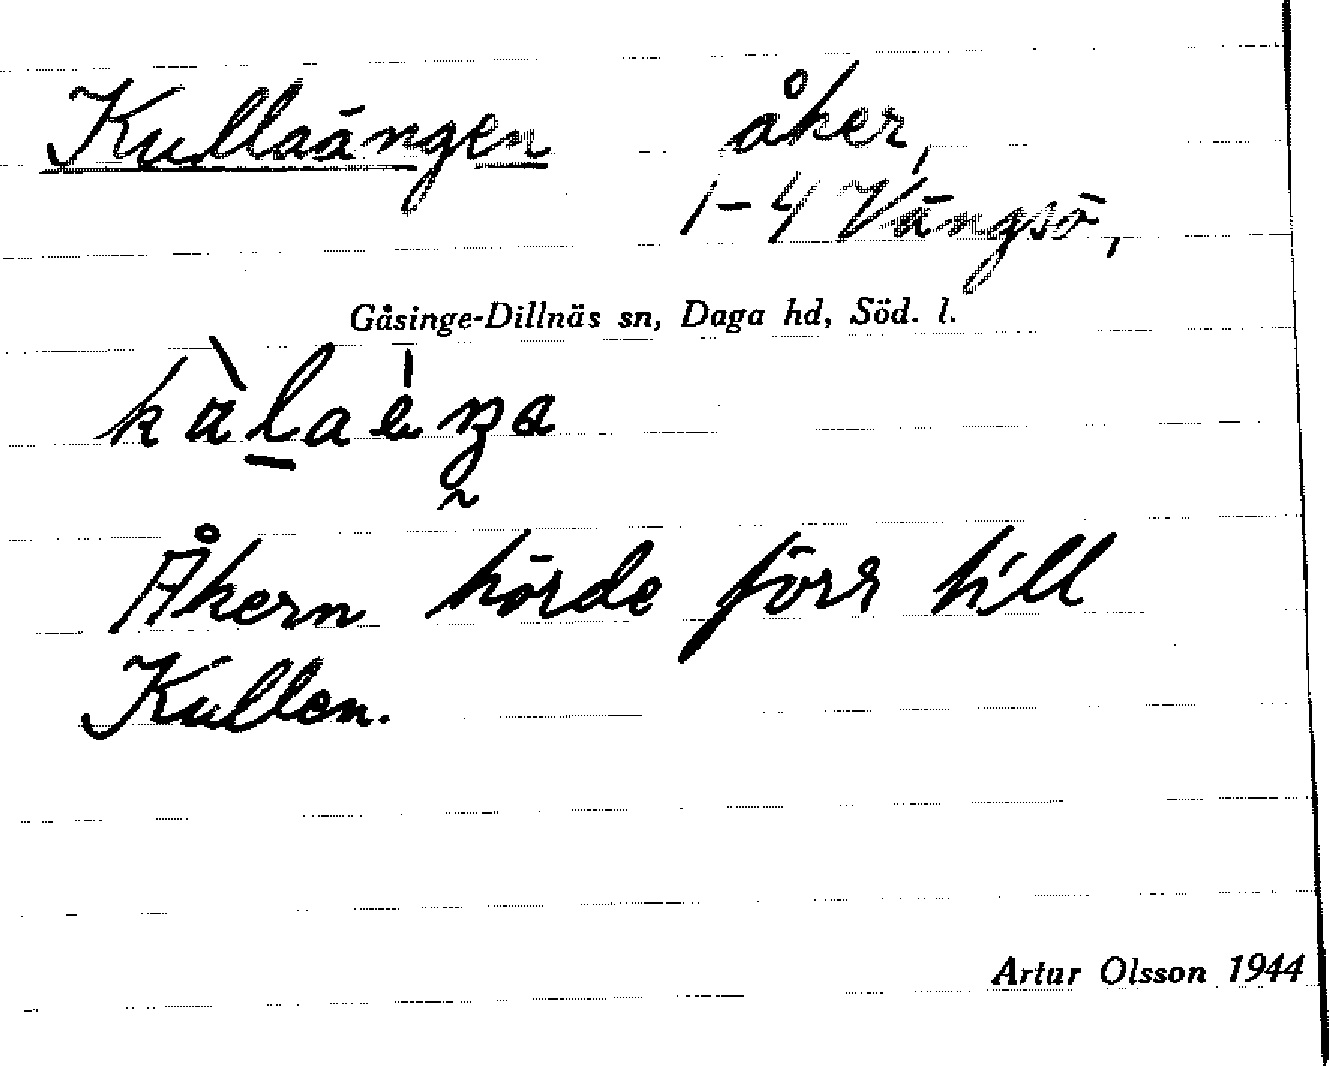 Kullaängen åker,
1-4 Vängsö,
Gåsinge-Dillnäs sn, Daga hd, Söd. l.
Åkern hörde förr till
Kullen.
Artur Olsson 1944